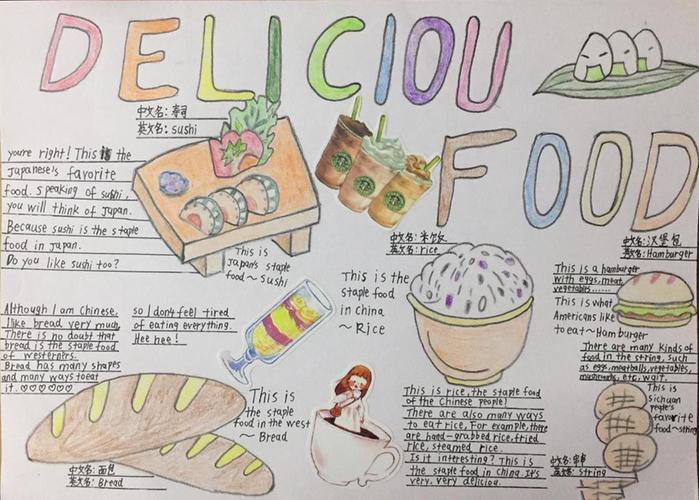 DELICIOU
FOOD
中文名：寿司
英文名：sushi
you're right! This is the
Japanese's favorite
food. Speaking of sushi,
you will think of Japan.
Because sushi is the staple
food in Japan.
Do you like sushi too?
This is
Japan's staple
food ~ Sushi
中文名：米饭
英文名：rice
This is the
staple food
in china
~ Rice
中文名：汉堡包
英文名：Hamburger
This is a hamburger
with eggs, meat,
vegetables......
This is what
Americans like
to eat ~ Hamburger
Although I am Chinese,
I like bread very much,
There is no doubt that
bread is the staple food
of westerners.
Bread has many shapes
and many ways to eat
it. ♡♡♡♡♡♡
so I don't feel tired
of eating everything.
Hee hee!
This is
the staple
food in the west
~ Bread
中文名：面包
英文名：Bread
This is rice, the staple food
of the Chinese people!
There are also many ways
to eat rice, For example, there
are hand-grabbed rice, fried
rice, steamed rice.
Is it interesting? This is
the staple food in China. It's
very, very deliciou.
There are many kinds of
food in the string, such
as eggs, meatballs, vegetables,
mushrooms, etc, wait.
This is
sichuan
people's
favorite
food ~ string
中文名：串串
英文名：string